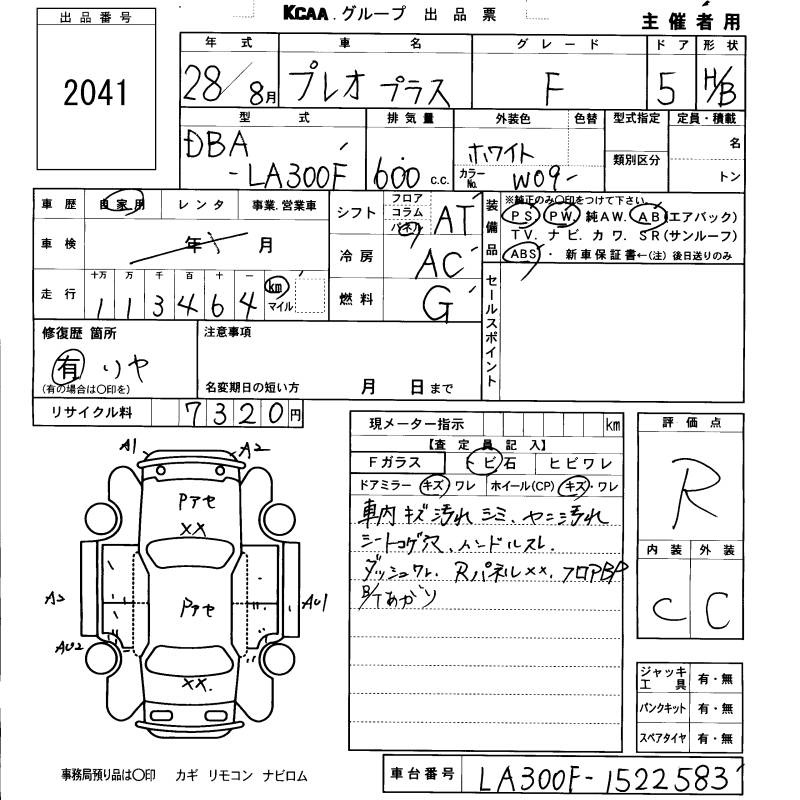 KCAA.グループ 出品票
主催者用
出品番号
2041
年式 車名 グレード ドア 形状
28/8月 プレオ プラス F 5 H/B
型式 排気量 外装色 色替 型式指定 定員・積載
DBA
-LA300F 600 c.c. ホワイト
カラーNo. W09-
類別区分
名
トン
車歴 自家用 レンタ 事業.営業車
車検 年 月
走行 十万 万 千 百 十 一
1 1 3 4 6 4 km マイル
シフト フロア コラム パネル AT
冷房 AC
燃料 G
装備品
※純正のみ○印をつけて下さい。
PS PW 純AW. AB(エアバック)
TV. ナビ. カワ. SR(サンルーフ)
ABS・新車保証書←(注)後日送りのみ
セールスポイント
修復歴 箇所
有 リヤ
(有の場合は○印を)
注意事項
名変期日の短い方 月 日まで
リサイクル料 7320円
現メーター指示 km
【査定員記入】
Fガラス トビ石 ヒビワレ
ドアミラー キズ・ワレ ホイール(CP) キズ・ワレ
車内 キズ 汚れ シミ、ヤニ汚れ
シートコゲ穴、ハンドルスレ.
ダッシュワレ. Rパネル××. フロアBP
B/Tあがり
評価点
R
内装 外装
C C
A1 A2
Pアセ
××
A2
Pアセ
AU1
AU2
××.
ジャッキ工具 有・無
パンクキット 有・無
スペアタイヤ 有・無
事務局預り品は○印 カギ リモコン ナビロム
車台番号 LA300F-1522583